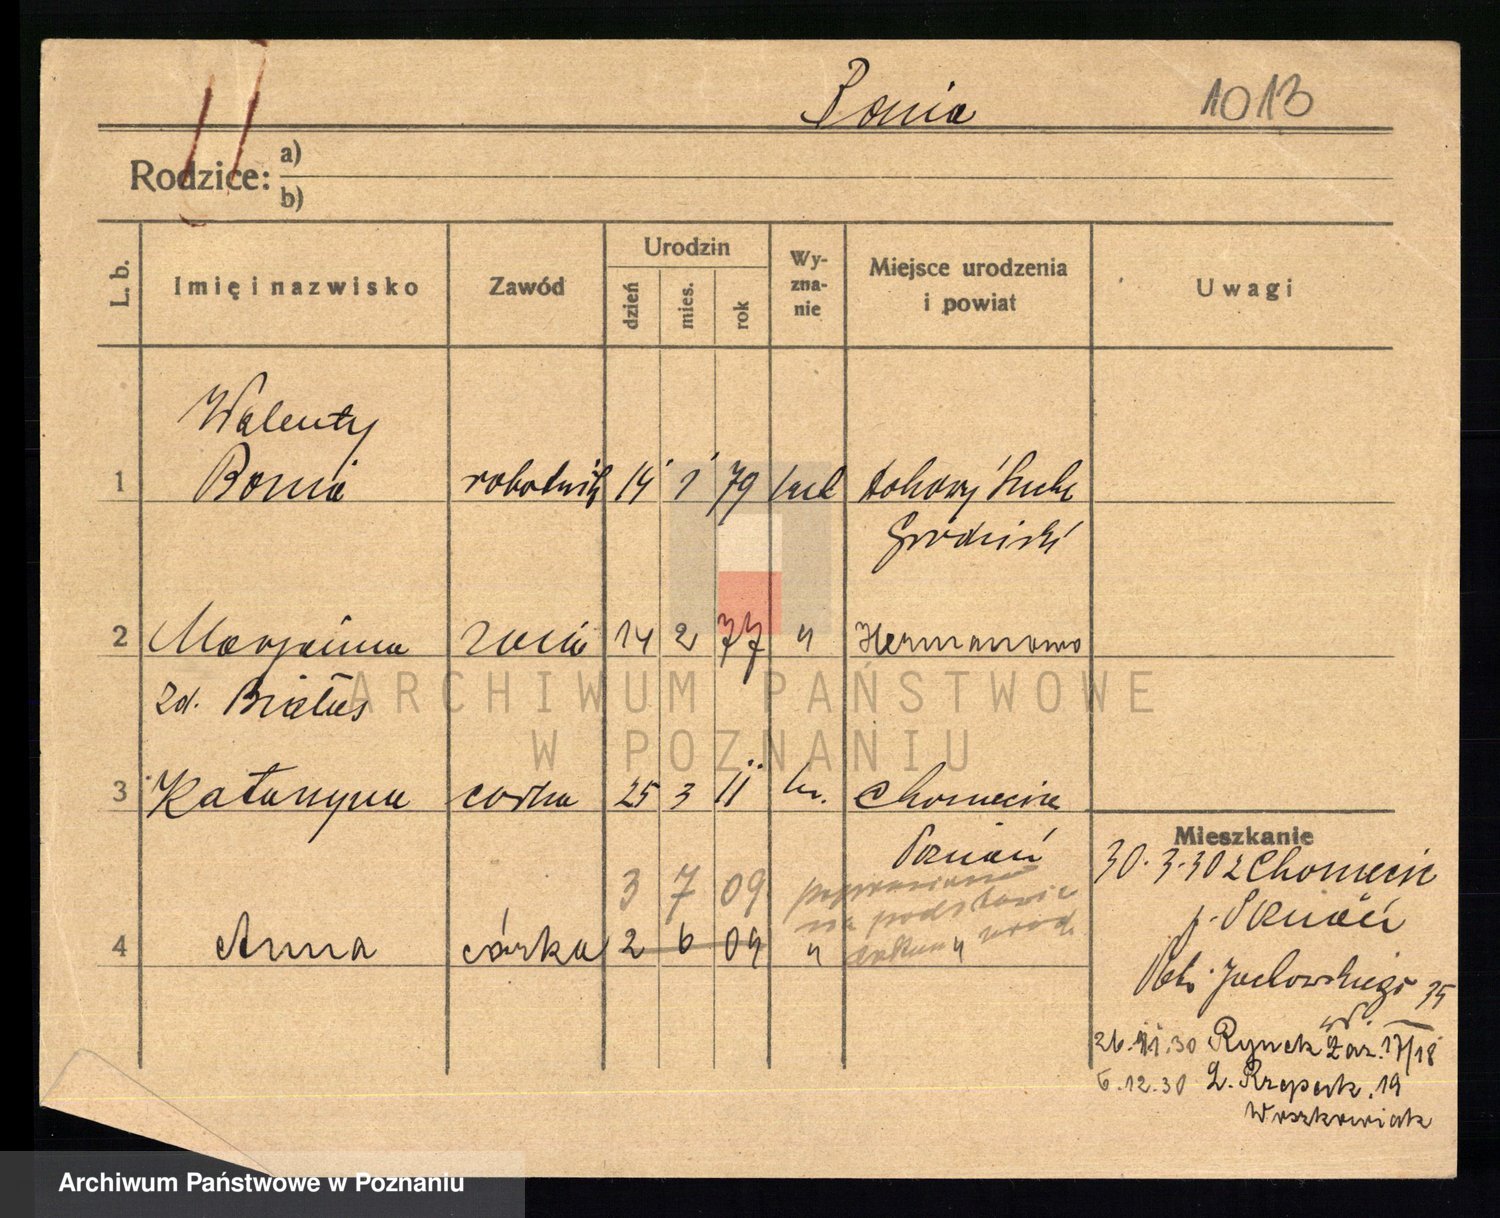 Bonia 1013
Rodzice: a)
b)
L. b. Imię i nazwisko Zawód Urodzin dzień mies. rok Wy-zna-nie Miejsce urodzenia i powiat Uwagi
Walenty
1 Bonia robotnik 14 1 79 Dokowy Suche
Grodziski
2 Marjanna żona 14 2 77 " Hermanowo
zd. Białas
3 Katarzyna córka 25 3 11 Chomęcice
Poznań
Mieszkanie
30.3.30 z Chomęcic
p. Poznań
3 7 09 poprawiono
na podstawie
urodz.
4 Anna córka 2 6 09 " "
35
26.11.30 Rynek Łaz. 17/18
6.12.30 Rzepeck. 19
Woszkowiak
ARCHIWUM PAŃSTWOWE
W POZNANIU
Archiwum Państwowe w Poznaniu